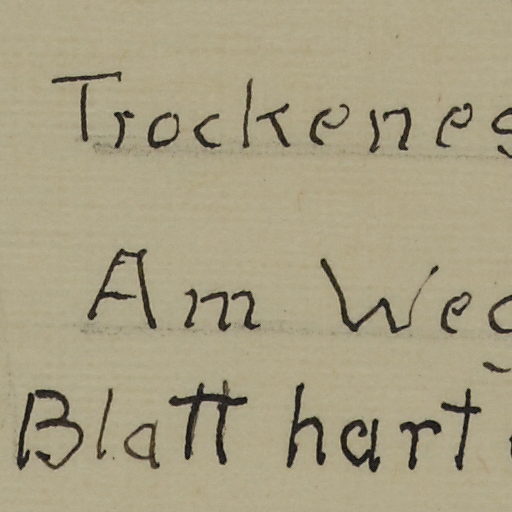 Trockenes
Am Weg
Blatt hart